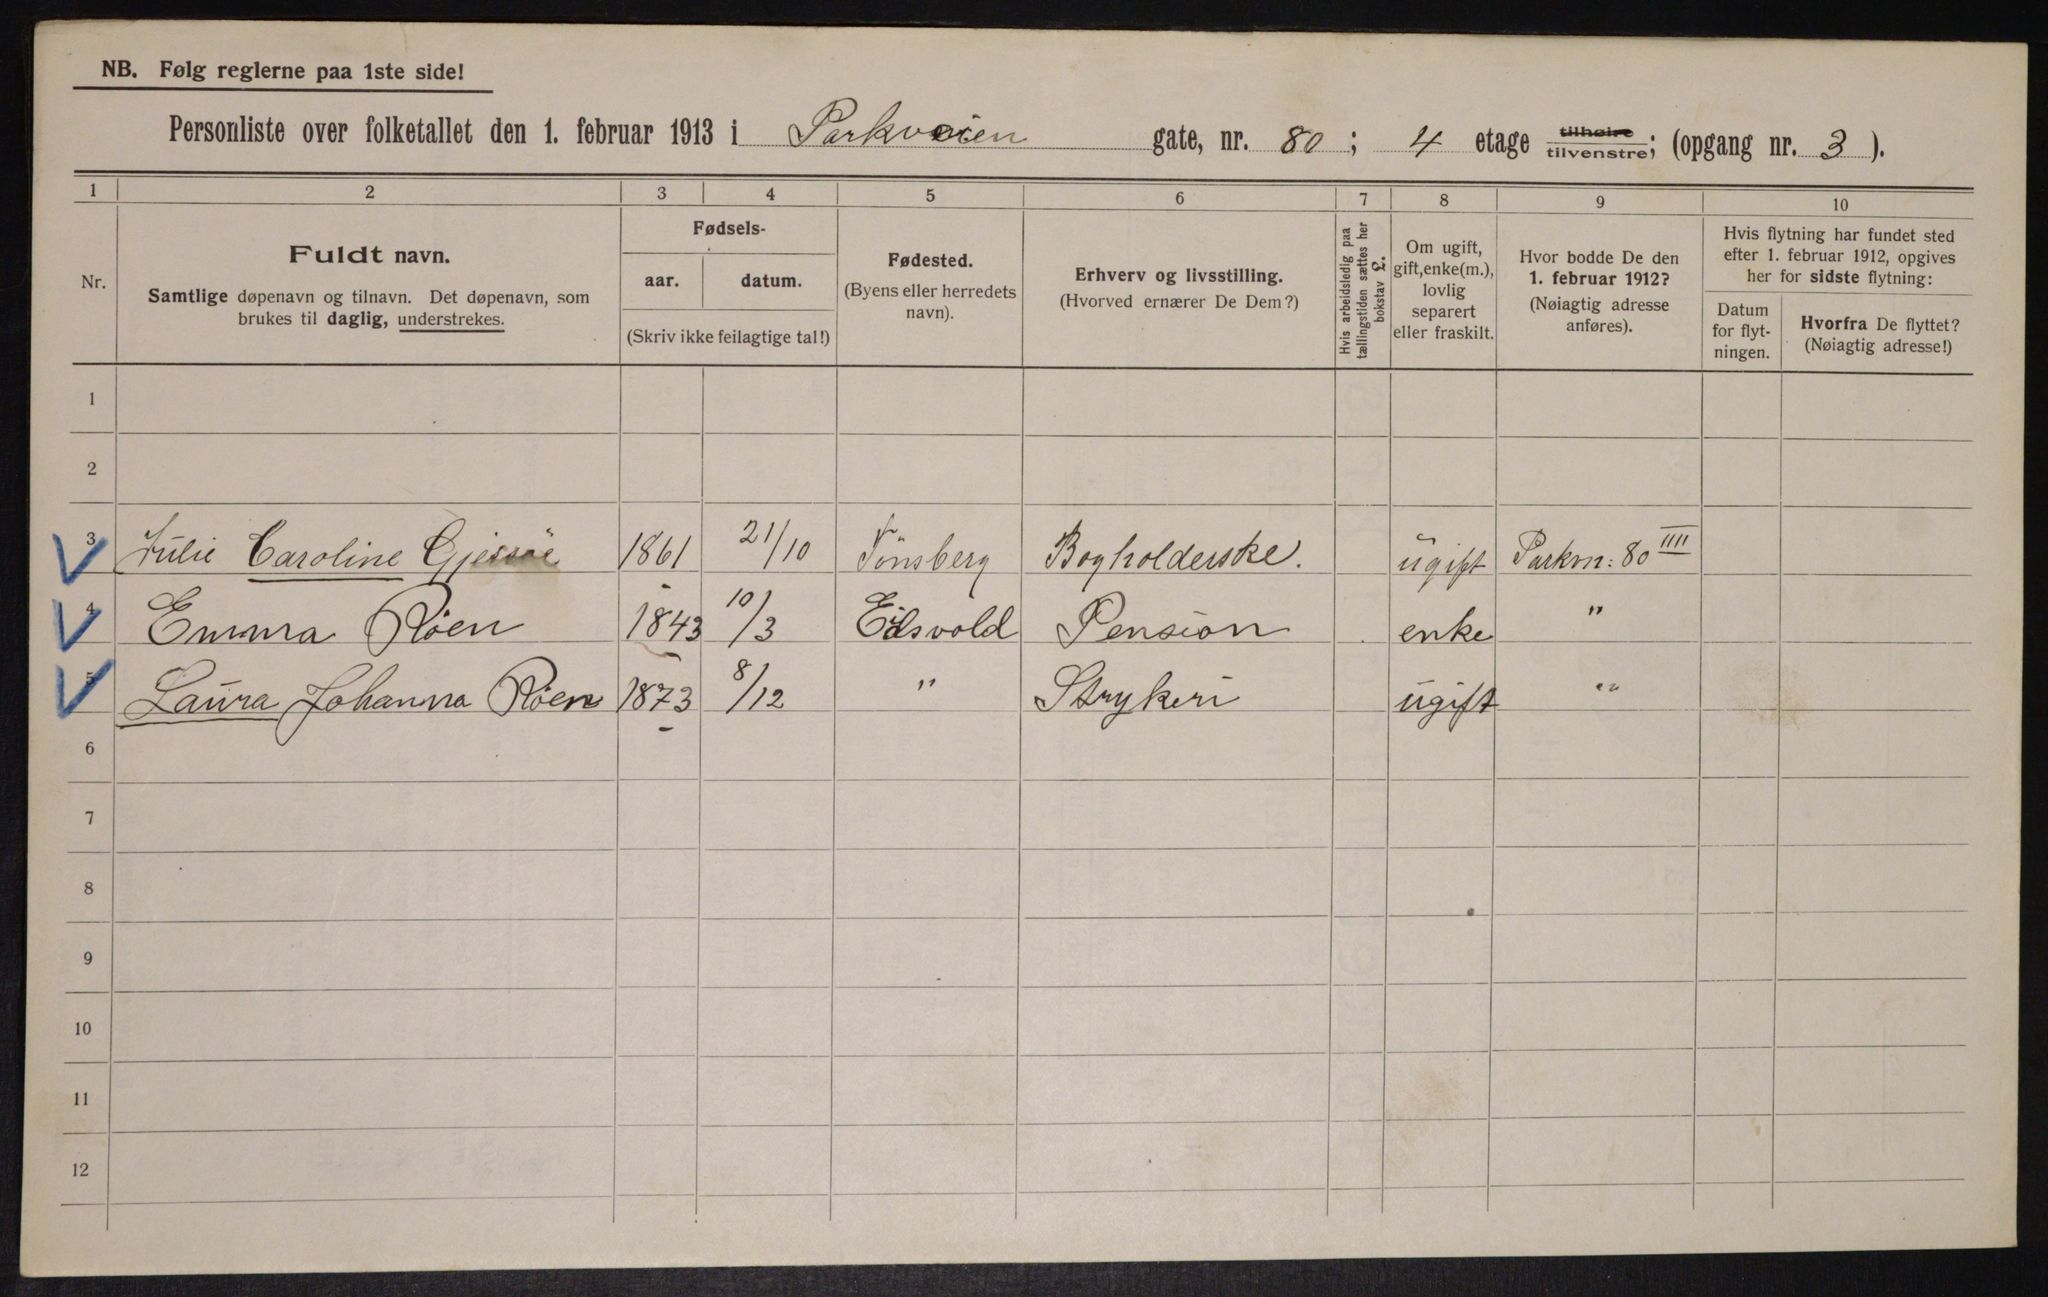 NB. Følg reglerne paa 1ste side!
Personliste over folketallet den 1. februar 1913 i Parkveien gate, nr. 80 ; 4 etage tilhøire tilvenstre; (opgang nr. 3 ).
1 2 3 4 5 6 7 8 9 10
Nr.
Fuldt navn.
Samtlige døpenavn og tilnavn. Det døpenavn, som
brukes til daglig, understrekes.
Fødsels-
aar. datum.
(Skriv ikke feilagtige tal!)
Fødested.
(Byens eller herredets
navn).
Erhverv og livsstilling.
(Hvorved ernærer De Dem?)
Hvis arbeidsledig paa
tællingstiden sættes her
bokstav L.
Om ugift,
gift, enke(m.),
lovlig
separert
eller fraskilt.
Hvor bodde De den
1. februar 1912?
(Nøiagtig adresse
anføres).
Hvis flytning har fundet sted
efter 1. februar 1912, opgives
her for sidste flytning:
Datum
for flyt-
ningen.
Hvorfra De flyttet?
(Nøiagtig adresse!)
1
2
3 Julie Caroline Gjessöe 1861 21/10 Tönsberg Bogholderske. ugift Parkvn: 80 IIII
4 Emma Röen 1843 10/3 Eidsvold Pension enke "
5 Laura Johanna Röen 1873 8/12 " Strykeri ugift "
6
7
8
9
10
11
12